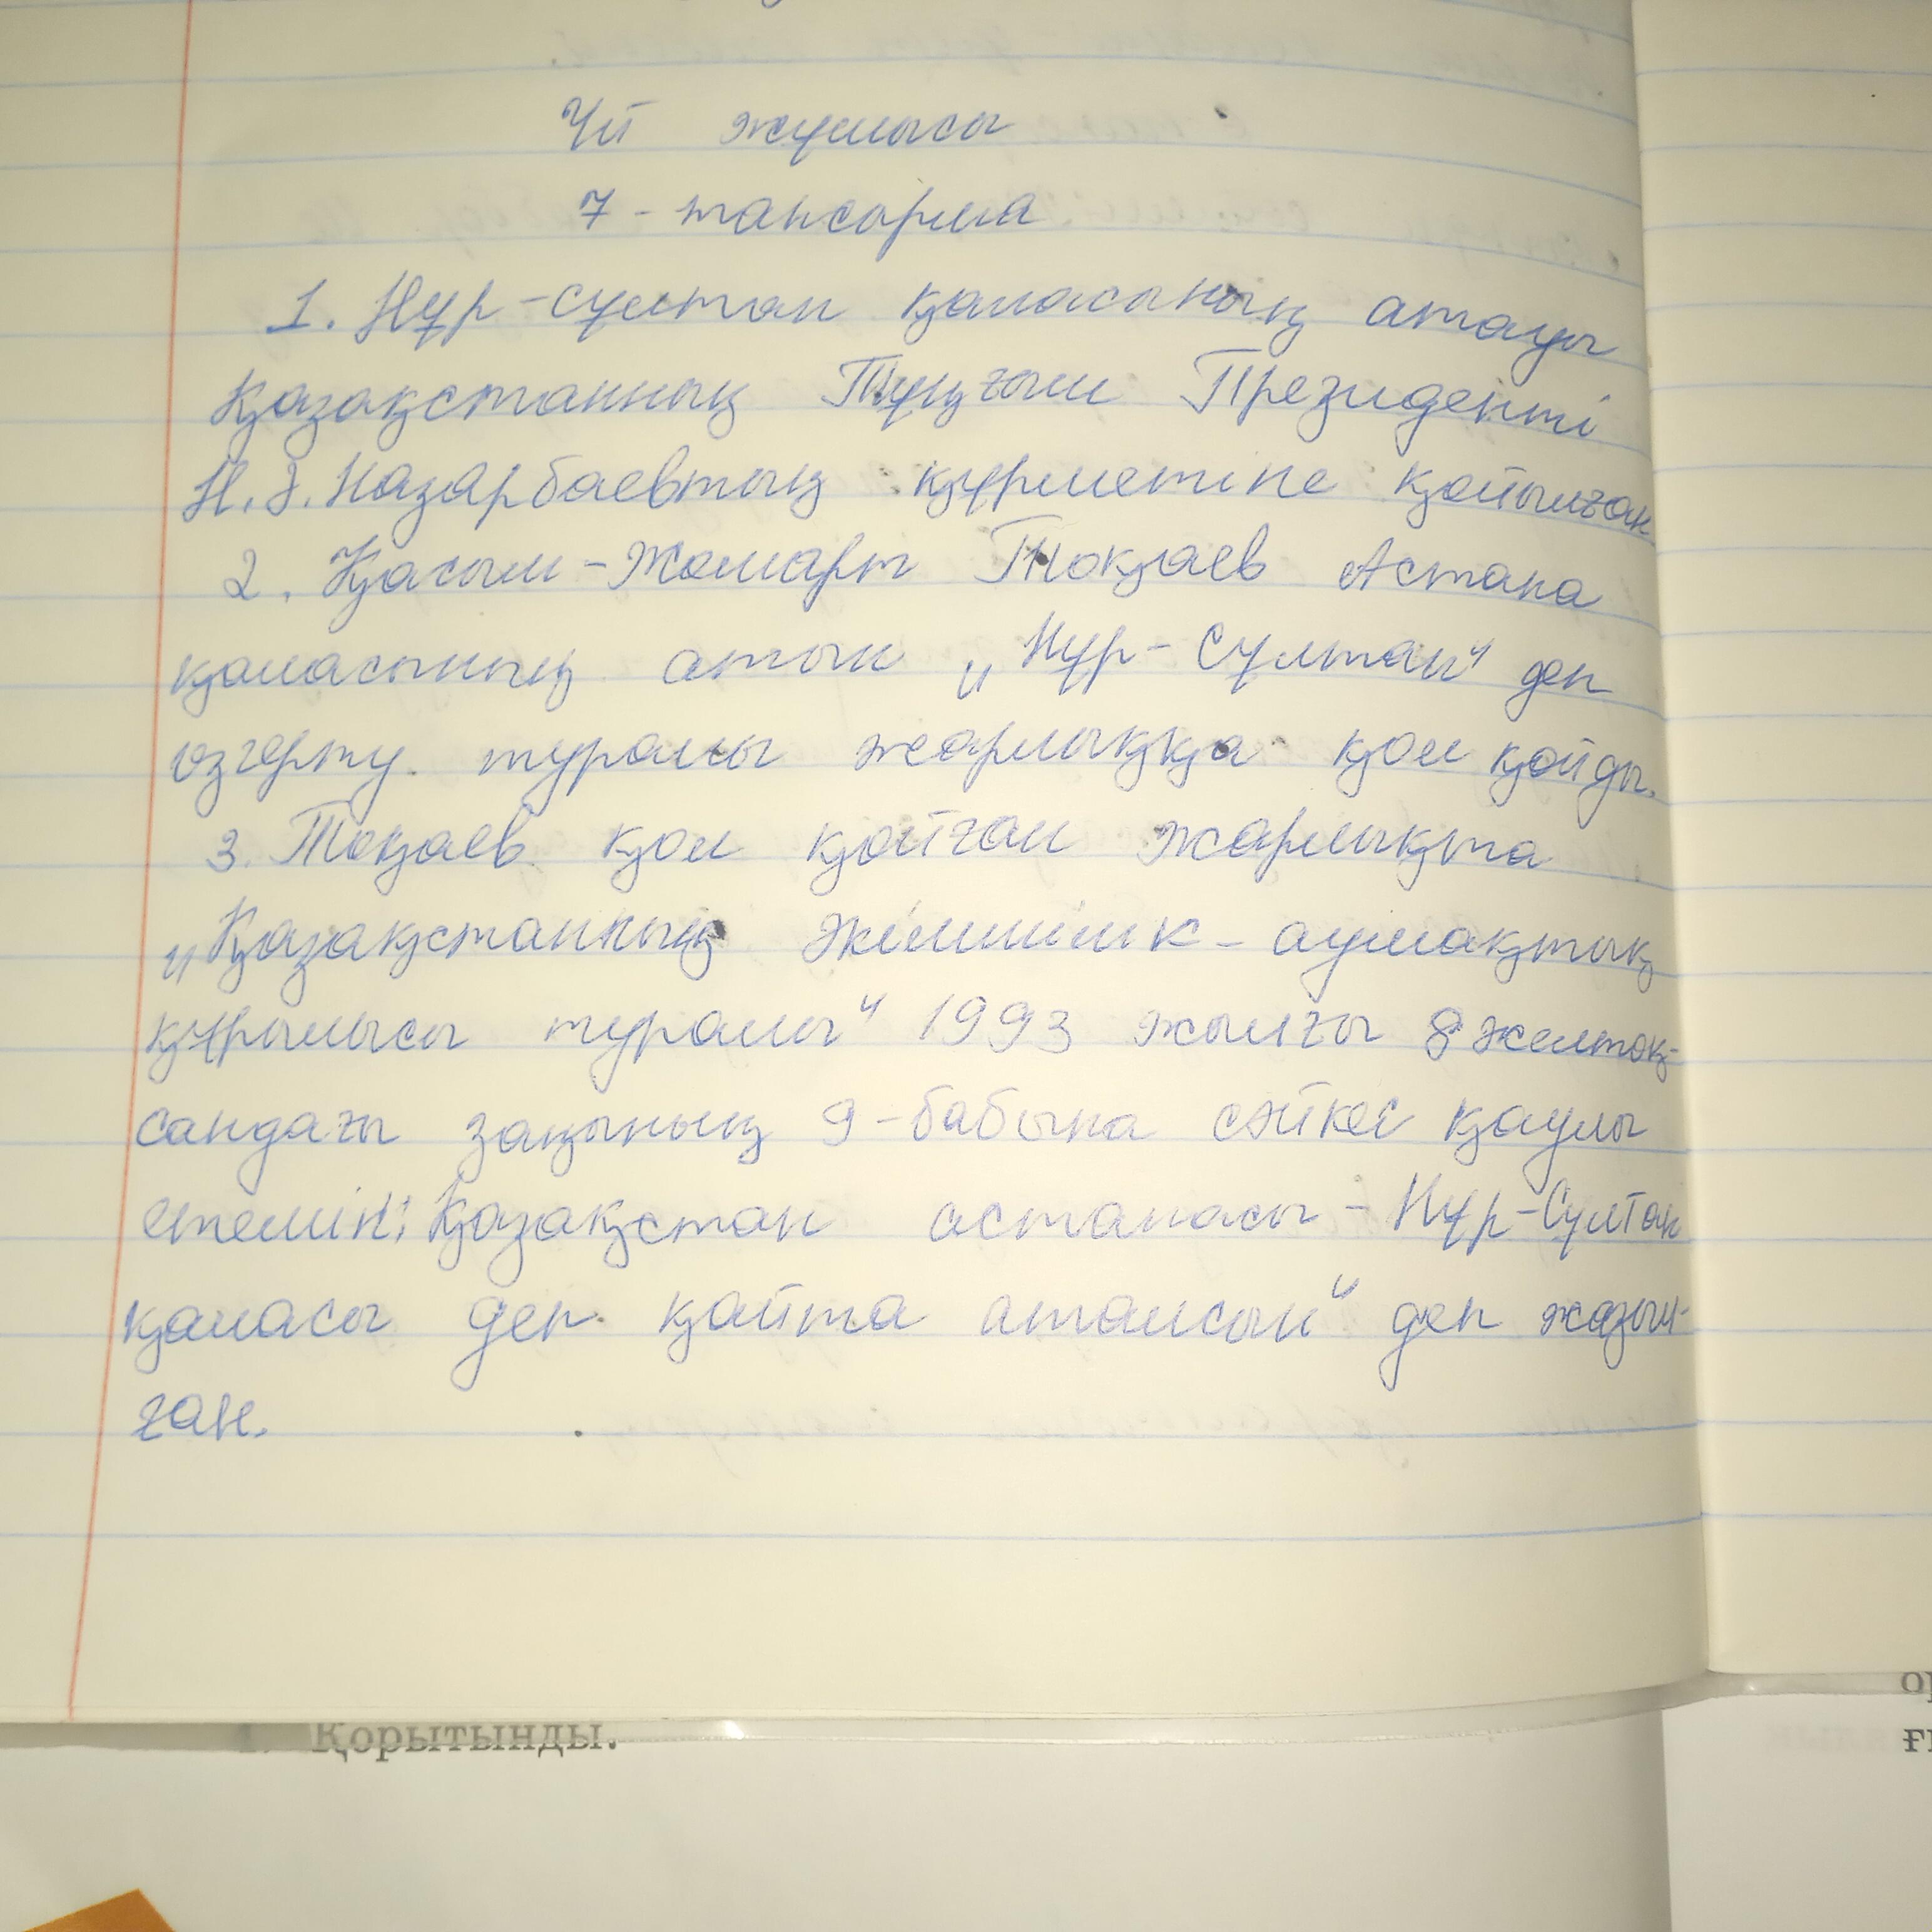 Үй жұмысы
7 - тапсырма
1. Нұр-сұлтан қаласының атауы
Қазақстанның Тұңғыш Президенті
Н.Ә.Назарбаевтың құрметіне қойылған.
2. Қасым-Жомарт Тоқаев Астана
қаласының атын „Нұр-Сұлтан“ деп
өзгерту туралы жарлыққа қол қойды.
3. Тоқаев қол қойған жарлықта
„Қазақстанның әкімшілік-аумақтық
құрылысы туралы“ 1993 жылғы 8 желтоқ-
сандағы заңының 9-бабына сәйкес қаулы
етемін: Қазақстан астанасы - Нұр-Сұлтан
қаласы деп қайта аталсын“ деп жазыл-
ған.
Қорытынды.